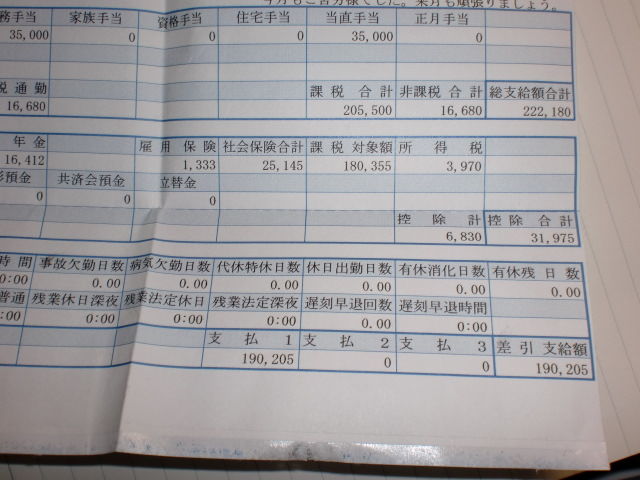 今月もご苦労様でした。来月も頑張りましょう。
務手当 家族手当 資格手当 住宅手当 当直手当 正月手当
35,000 0 0 0 35,000 0
税通勤 課税合計 非課税合計 総支給額合計
16,680 205,500 16,680 222,180
年金 雇用保険 社会保険合計 課税対象額 所得税
16,412 1,333 25,145 180,355 3,970
預金 共済会預金 立替金
0 0 0
控除計 控除合計
6,830 31,975
時間 事故欠勤日数 病気欠勤日数 代休特休日数 休日出勤日数 有休消化日数 有休残日数
0:00 0.00 0.00 0.00 0.00 0.00 0.00
普通 残業休日深夜 残業法定休日 残業法定深夜 遅刻早退回数 遅刻早退時間
0:00 0:00 0:00 0:00 0.00 0:00
支払1 支払2 支払3 差引支給額
190,205 0 0 190,205